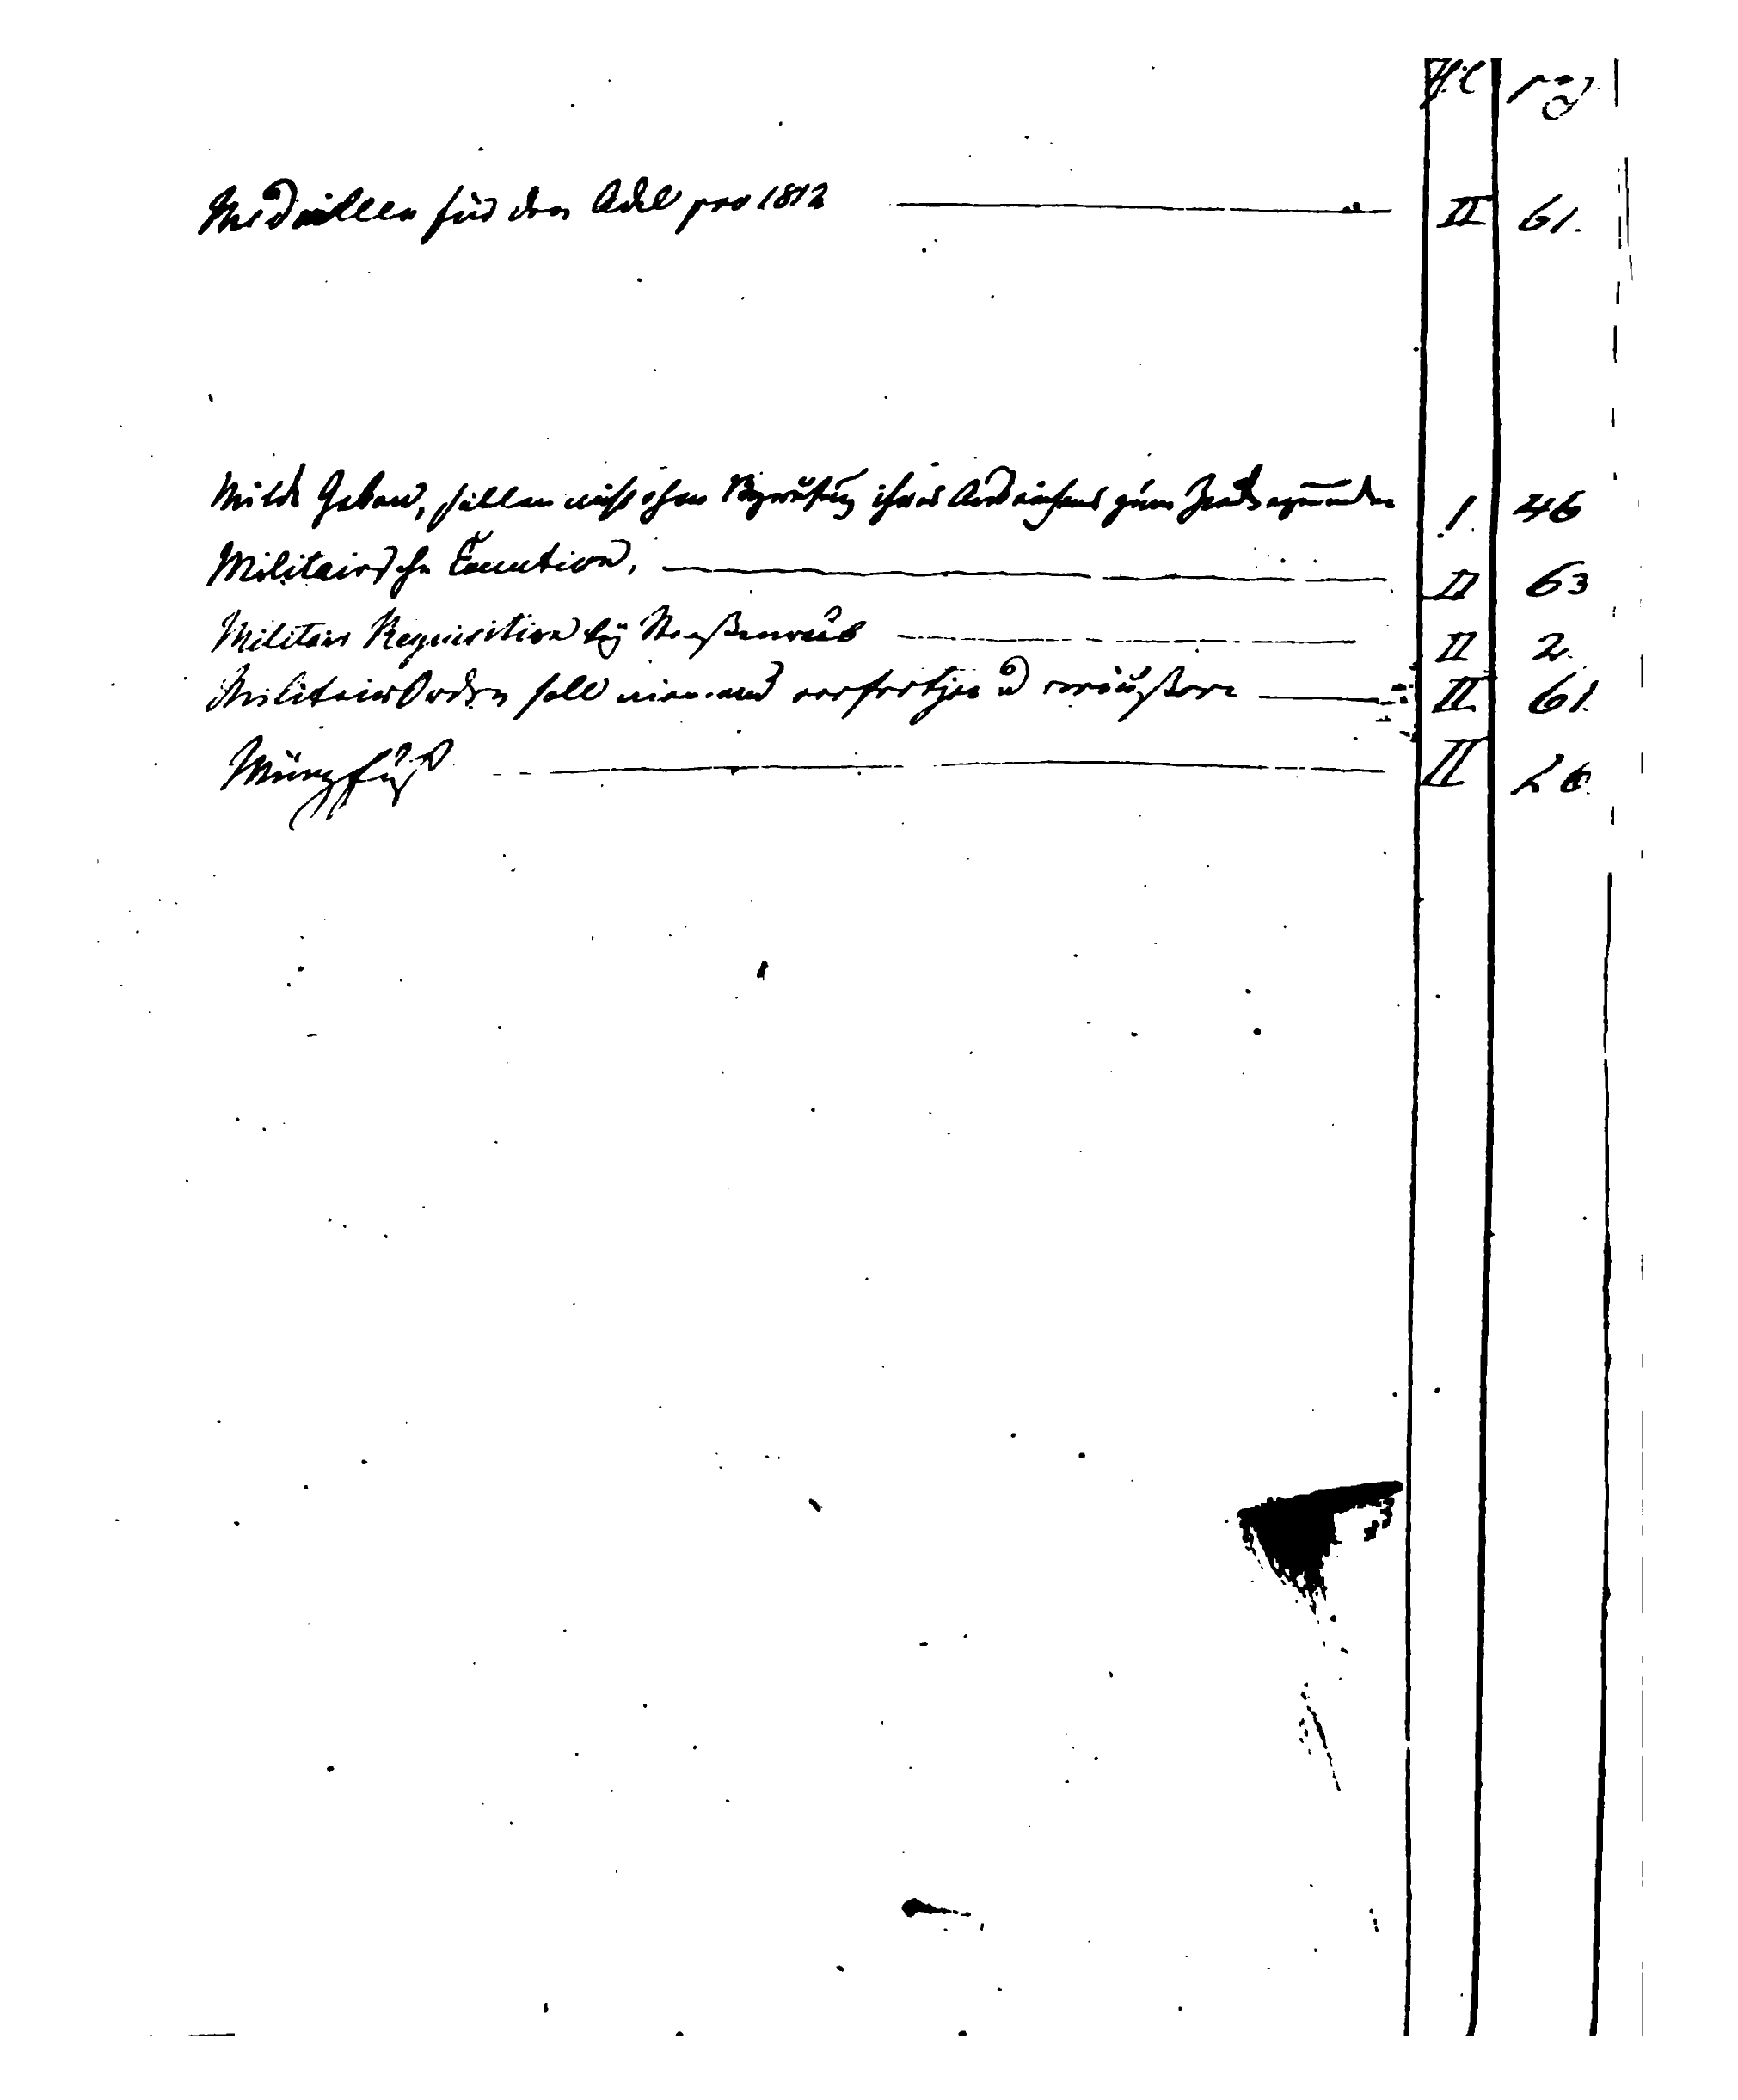 pag.
Medaillen für den Adel pro 1812 II 61.
Milde Gaben, sollen nicht ohne ihres zum I. 46
Militairische Execution, II 63
Militair Requisition bey Straßenraub II 2.
Militair Orden soll niemand verfertigen u veräußern II 61.
Münzfuß II 26.